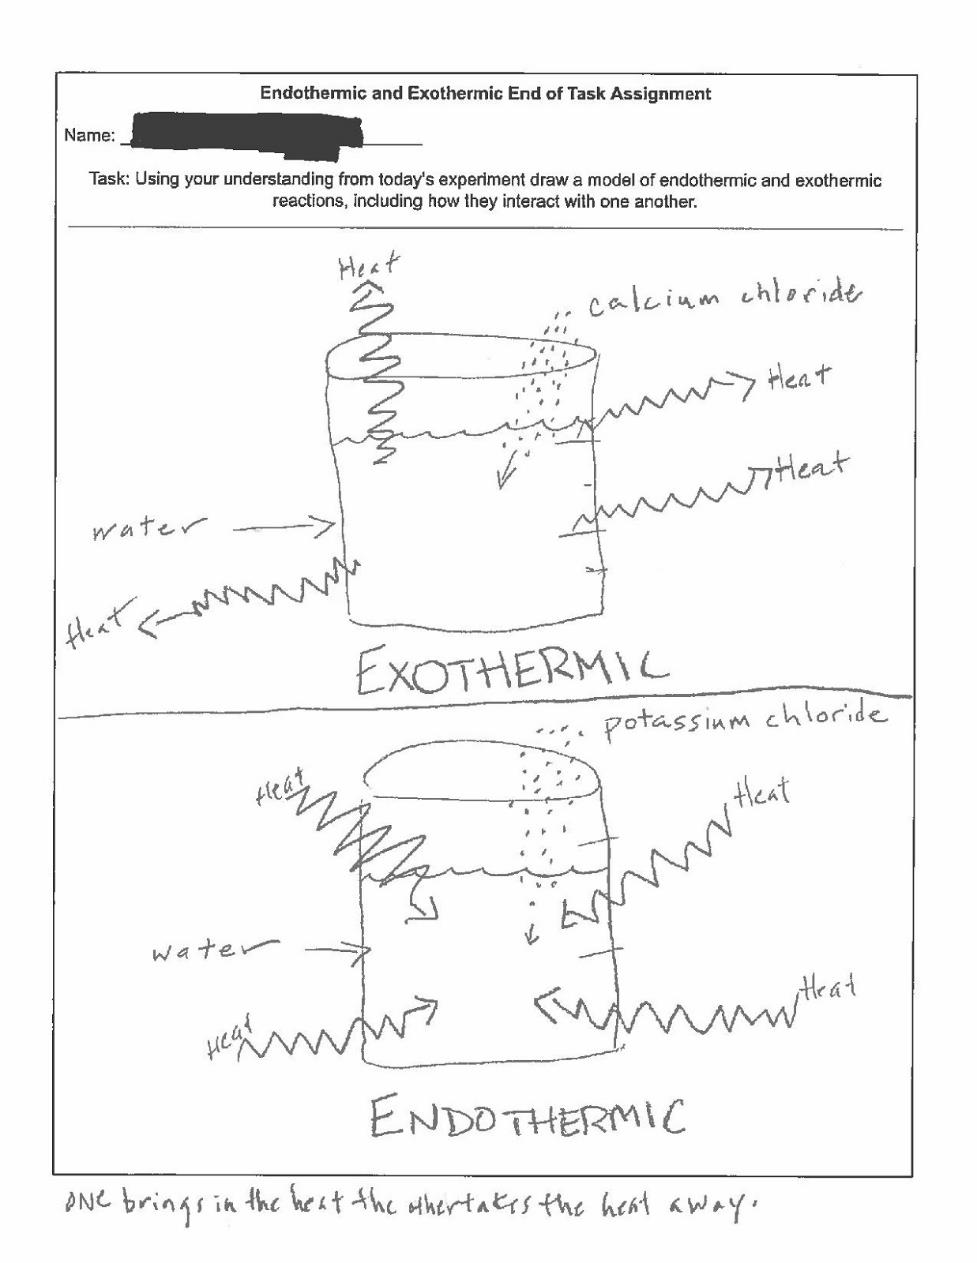 Endothermic and Exothermic End of Task Assignment
Name:
Task: Using your understanding from today's experiment draw a model of endothermic and exothermic
reactions, including how they interact with one another.
Heat
calcium chloride
Heat
Heat
water
Heat
EXOTHERMIC
potassium chloride
Heat
Heat
water
Heat
Heat
ENDOTHERMIC
ONE brings in the heat the other takes the heat away.